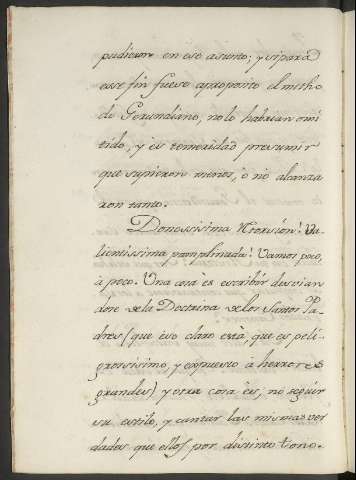 pudieron en ese asunto; y si para
esse fin fuese aproposito el metho
do Gerundiano, no lo habrian omi
tido, y es temeridad presumir
que supieron menos, ò no alcanza
ron tanto.
Donossissima Ntorsión! Va
lientissima pamplinada! Vamos poco,
à poco. Una cosa es escribir desvian
dose de la Doctrina de los Santos Pa
dres (que èso claro està, que es peli
grossissimo, y expuesto à herrores
grandes) y otra cosa ès, no seguir
su estilo, y cantar las mismas ver
dades que ellos por distinto tono.